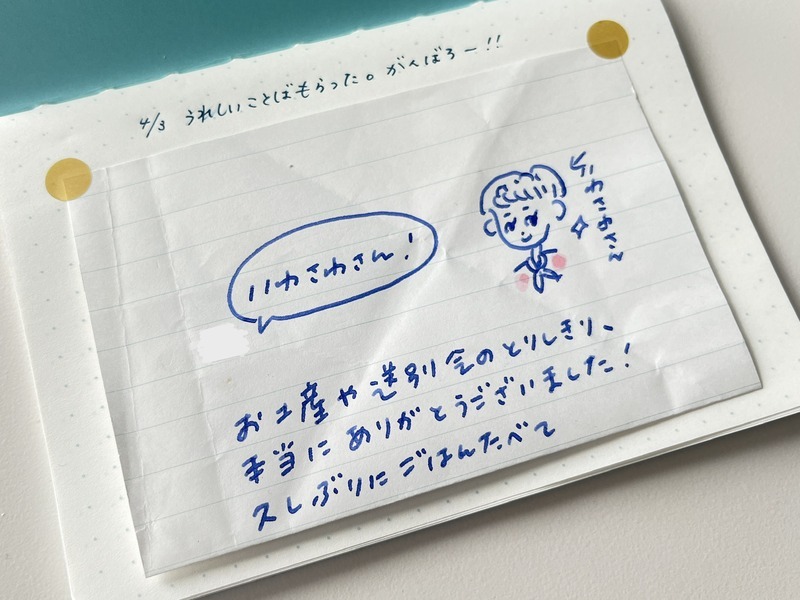 4/3 うれしいことばもらった。がんばろー!!
いわさわさん!
いわさわさん
お土産や送別会のとりしきり、
本当にありがとうございました!
久しぶりにごはんたべて